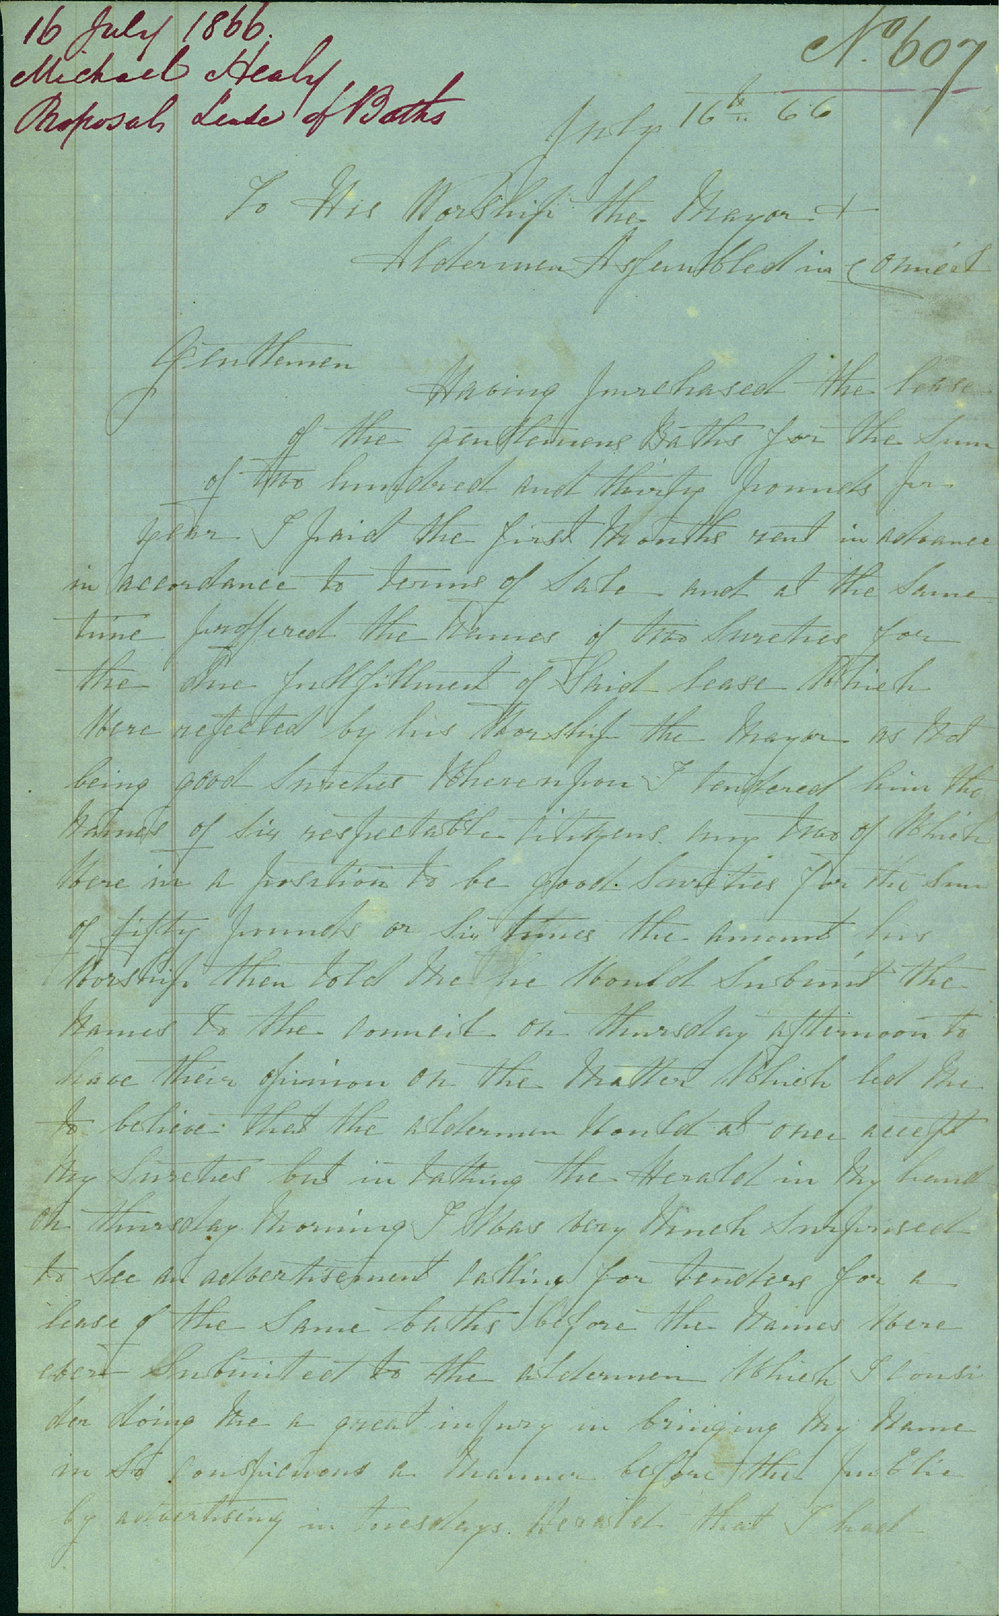 16 July 1866.
Michael Healy
Proposal Lease of Baths
No. 607
July 16th 66
To His Worship the Mayor +
Aldermen Assembled in Council
Gentlemen
Having purchased the lease
of the gentlemens Baths for the Sum
of two hundred and thirty pounds per
year I paid the first Months rent in advance
in accordance to terms of Sale and at the Same
time proffered the Names of two Sureties for
the due fullfillment of Said lease Which
Were rejected by his Worship the Mayor as Not
being good Sureties Whereupon I tendered him the
Names of six respectable citizens any two of Which
Were in a position to be good Sureties for the Sum
of fifty pounds or Six times the amount his
Worship then told Me he Would Submit the
Names to the Council on thursday afternoon to
have their opinion on the Matter Which led Me
to believe that the aldermen Would at once accept
My Sureties but in taking the Herald in My hand
on thursday Morning I Was very Much Surprised
to See an advertisement calling for tenders for a
lease of the Same baths before the Names Were
even Submitted to the aldermen Which I consi
der doing Me a great injury in bringing My Name
in So Conspicuous a Manner before the public
by advertising in tuesdays Herald that I had